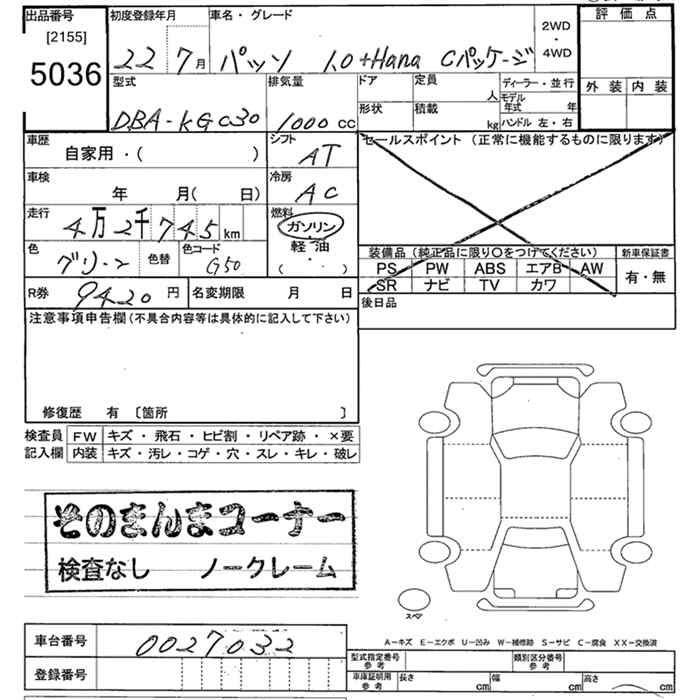 出品番号 初度登録年月 車名・グレード 2WD・4WD 評価点
[2155]
5036
22 7月 パッソ 1.0+Hana Cパッケージ
型式 排気量 ドア 定員 人 ディーラー・並行 外装 内装
形状 積載 kg モデル年式 年
ハンドル 左・右
DBA-KGC30 1000cc
車歴 シフト セールスポイント (正常に機能するものに限ります)
自家用・( ) AT
車検 冷房
年 月(日) AC
走行 燃料
4万2千745km ガソリン・軽油
(・)
装備品(純正品に限り○をつけてください) 新車保証書
色 グリーン 色替 色コード G50
PS PW ABS エアB AW 有・無
SR ナビ TV カワ
R券 9420円 名変期限 月 日
後日品
注意事項申告欄(不具合内容等は具体的に記入して下さい)
修復歴 有 〔箇所 〕
検査員 FW キズ・飛石・ヒビ割・リペア跡・×要
記入欄 内装 キズ・汚レ・コゲ・穴・スレ・キレ・破レ
そのまんまコーナー
検査なし ノークレーム
スペア
A-キズ E-エクボ U-凹み W-補修跡 S-サビ C-腐食 XX-交換済
車台番号 0027032
型式指定番号 参考 類別区分番号 参考
登録番号
車庫証明用 参考 長さ cm 幅 cm 高さ cm